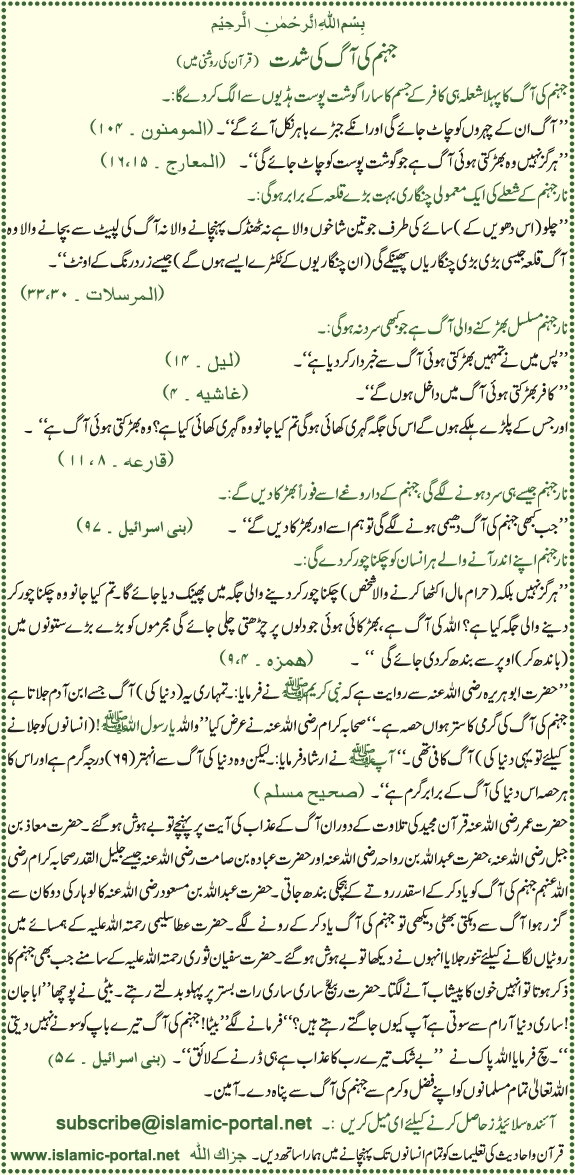 بِسْمِ اللهِ الرَّحْمٰنِ الرَّحِيْمِ
جہنم کی آگ کی شدت (قرآن کی روشنی میں)
جہنم کی آگ کا پہلا شعلہ ہی کافر کے جسم کا سارا گوشت پوست ہڈیوں سے الگ کردے گا:۔
’’آگ ان کے چہروں کو چاٹ جائے گی اور انکے جبڑے باہر نکل آئے گے‘‘۔ (المومنون ۔ ۱۰۴)
’’ہرگز نہیں وہ بھڑکتی ہوئی آگ ہے جو گوشت پوست کو چاٹ جائے گی‘‘۔ (المعارج ۔ ۱۶،۱۵)
نار جہنم کے شعلے کی ایک معمولی چنگاری بہت بڑے قلعہ کے برابر ہوگی:۔
’’چلو (اس دھویں کے) سائے کی طرف جو تین شاخوں والا ہے نہ ٹھنڈک پہنچانے والا نہ آگ کی لپیٹ سے بچانے والا وہ
آگ قلعہ جیسی بڑی بڑی چنگاریاں پھینکے گی (ان چنگاریوں کے ٹکڑے ایسے ہوں گے) جیسے زرد رنگ کے اونٹ‘‘۔
(المرسلات ۔ ۳۳،۳۰)
نار جہنم مسلسل بھڑکنے والی آگ ہے جو کبھی سرد نہ ہوگی:۔
’’پس میں نے تمہیں بھڑکتی ہوئی آگ سے خبردار کردیا ہے‘‘۔ (لیل ۔ ۱۴)
’’کافر بھڑکتی ہوئی آگ میں داخل ہوں گے‘‘۔ (غاشیہ ۔ ۴)
اور جس کے پلڑے ہلکے ہوں گے اس کی جگہ گہری کھائی ہوگی تم کیا جانو وہ گہری کھائی کیا ہے؟ وہ بھڑکتی ہوئی آگ ہے‘‘ ۔
(قارعہ ۔ ۱۱،۸)
نار جہنم جیسے ہی سرد ہونے لگے گی، جہنم کے داروغے اسے فوراً بھڑکا دیں گے:۔
’’جب کبھی جہنم کی آگ دھیمی ہونے لگے گی تو ہم اسے اور بھڑکا دیں گے‘‘ ۔ (بنی اسرائیل ۔ ۹۷)
نار جہنم اپنے اندر آنے والے ہر انسان کو چکنا چور کردے گی:۔
’’ہرگز نہیں بلکہ (حرام مال اکٹھا کرنے والا شخص) چکنا چور کردینے والی جگہ میں پھینک دیا جائے گا۔ تم کیا جانو وہ چکنا چور کر
دینے والی جگہ کیا ہے؟ اللہ کی آگ ہے، بھڑکائی ہوئی جو دلوں پر چڑھتی چلی جائے گی مجرموں کو بڑے بڑے ستونوں میں
(باندھ کر) اوپر سے بند کردی جائے گی ‘‘ ۔ (ھمزہ ۔ ۹،۴)
’’حضرت ابوہریرہ رضی اللہ عنہ سے روایت ہے کہ نبی کریم ﷺ نے فرمایا:۔ تمہاری یہ (دنیا کی) آگ جسے ابن آدم جلاتا ہے
جہنم کی آگ کی گرمی کا ستر ہواں حصہ ہے۔‘‘ صحابہ کرام رضی اللہ عنہ نے عرض کیا ’’واللہ یا رسول اللہ ﷺ! (انسانوں کو جلانے
کیلئے تو یہی دنیا کی) آگ کافی تھی۔‘‘ آپ ﷺ نے ارشاد فرمایا:۔ لیکن وہ دنیا کی آگ سے انہتر (۶۹) درجہ گرم ہے اور اس کا
ہر حصہ اس دنیا کی آگ کے برابر گرم ہے‘‘۔ (صحیح مسلم)
حضرت عمر رضی اللہ عنہ قرآن مجید کی تلاوت کے دوران آگ کے عذاب کی آیت پر پہنچے تو بے ہوش ہوگئے۔ حضرت معاذ بن
جبل رضی اللہ عنہ، حضرت عبداللہ بن رواحہ رضی اللہ عنہ اور حضرت عبادہ بن صامت رضی اللہ عنہ جیسے جلیل القدر صحابہ کرام رضی
اللہ عنہم جہنم کی آگ کو یاد کرکے اسقدر روتے کے ہچکی بندھ جاتی۔ حضرت عبداللہ بن مسعود رضی اللہ عنہ کا لوہار کی دوکان سے
گزر ہوا آگ سے دہکتی بھٹی دیکھی تو جہنم کی آگ یاد کرکے رونے لگے۔ حضرت عطا سلیمی رحمتہ اللہ علیہ کے ہمسائے میں
روٹیاں لگانے کیلئے تنور جلایا انہوں نے دیکھا تو بے ہوش ہوگئے۔ حضرت سفیان ثوری رحمتہ اللہ علیہ کے سامنے جب بھی جہنم کا
ذکر ہوتا تو انہیں خون کا پیشاب آنے لگتا۔ حضرت ربیع ساری ساری رات بستر پر پہلو بدلتے رہتے۔ بیٹی نے پوچھا ’’ابا جان
!ساری دنیا آرام سے سوتی ہے آپ کیوں جاگتے رہتے ہیں؟‘‘ فرمانے لگے ’’بیٹا! جہنم کی آگ تیرے باپ کو سونے نہیں دیتی
‘‘۔ سچ فرمایا اللہ پاک نے ’’بے شک تیرے رب کا عذاب ہے ہی ڈرنے کے لائق‘‘۔ (بنی اسرائیل ۔ ۵۷)
اللہ تعالیٰ تمام مسلمانوں کو اپنے فضل و کرم سے جہنم کی آگ سے پناہ دے۔ آمین۔
آئندہ سلائیڈز حاصل کرنے کیلئے ای میل کریں :۔ subscribe@islamic-portal.net
قرآن و احادیث کی تعلیمات کو تمام انسانوں تک پہنچانے میں ہمارا ساتھ دیں۔ جزاک اللہ www.islamic-portal.net